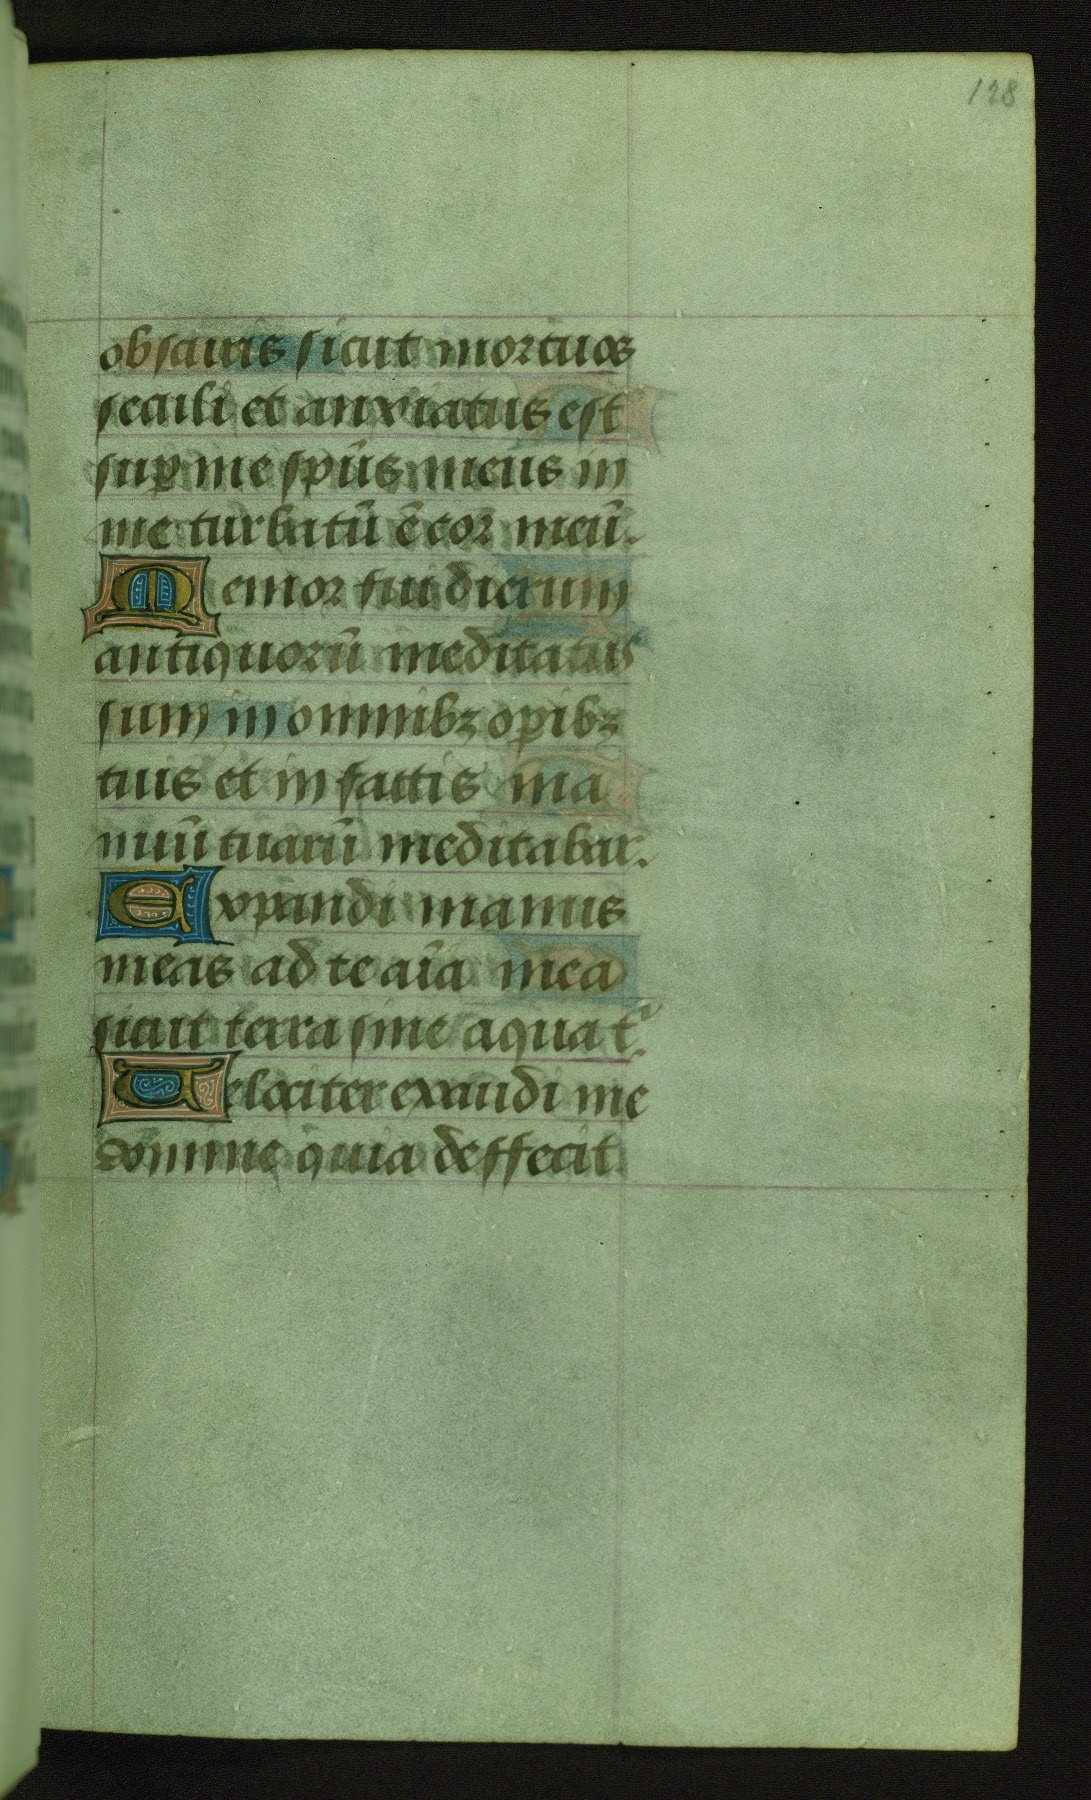 128
obscuris sicut mortuos
seculi et anxiatus est
sup me spūs meus in
me turbatū ē cor meū.
Memor fui dierum
antiquorū meditatus
sum in omnibꝫ opibꝫ
tuis et in factis ma
nuū tuarū meditabar.
Expandi manus
meas ad te aīa mea
sicut terra sine aqua t̄.
Velociter exaudi me
domine quia deffecit